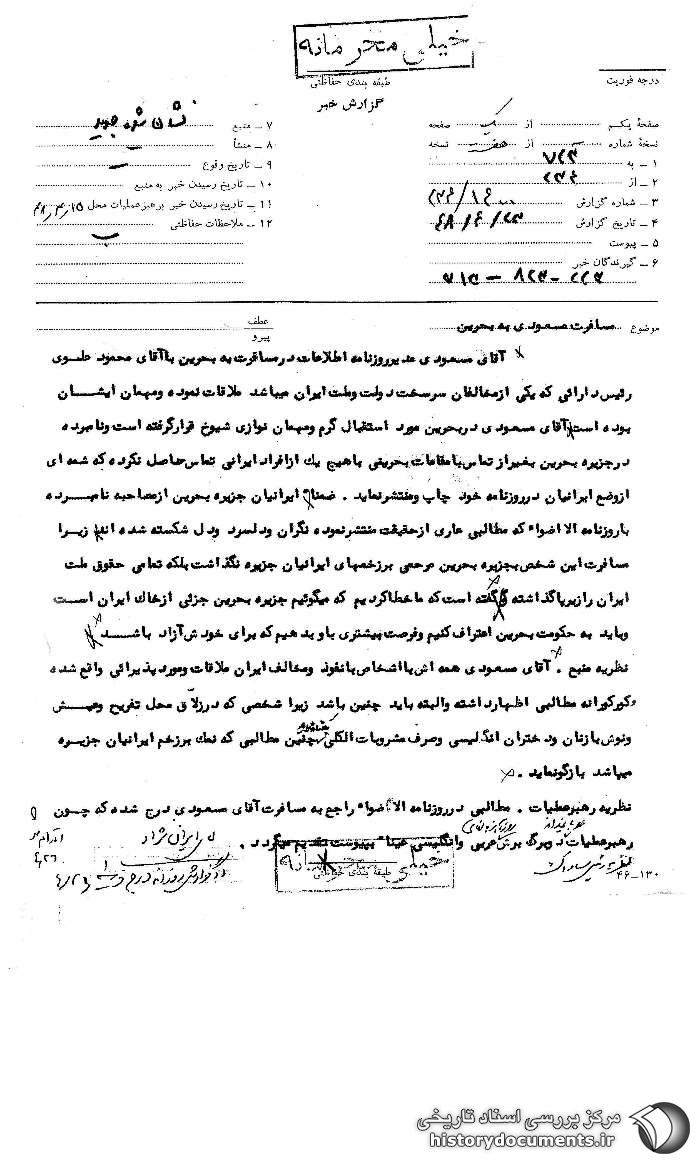 خیلی محرمانه
طبقه بندی حفاظتی
درجه فوریت
گزارش خبر
صفحهٔ یکم از یک صفحه
نسخهٔ شماره از هفت نسخه
۱ ـ به ۷۲۳
۲ ـ از
۳ ـ شماره گزارش
۴ ـ تاریخ گزارش
۵ ـ پیوست
۶ ـ گیرندگان خبر
۷ ـ منبع
۸ ـ منشأ
۹ ـ تاریخ وقوع
۱۰ ـ تاریخ رسیدن خبر به منبع
۱۱ ـ تاریخ رسیدن خبر برهبر عملیات محل ۴۸٫۴٫۱۵
۱۲ ـ ملاحظات حفاظتی
موضوع مسافرت مسعودی به بحرین
عطف
پیرو
آقای مسعودی مدیر روزنامه اطلاعات در مسافرت به بحرین با آقای محمود علوی
رئیس دارائی که یکی از مخالفان سرسخت دولت وملت ایران میباشد ملاقات نموده ومهمان ایشان
بوده است آقای مسعودی در بحرین مورد استقبال گرم ومهمان نوازی شیوخ قرار گرفته است ونامبرده
در جزیره بحرین بغیر از تماس با مقامات بحرینی با هیچ یک از افراد ایرانی تماس حاصل نکرده که شمه ای
از وضع ایرانیان در روزنامه خود چاپ ومنتشر نماید . ضمنا ایرانیان جزیره بحرین از مصاحبه نامبرده
با روزنامه الاضواء که مطالبی عاری از حقیقت منتشر نموده نگران ودلسرد ودل شکسته شده اند زیرا
مسافرت این شخص بجزیره بحرین مرحمی بر زخمهای ایرانیان جزیره نگذاشت بلکه تمامی حقوق ملت
ایران را زیر پا گذاشته و گفته است که ما خطا کردیم که میگوئیم جزیره بحرین جزئی از خاک ایران است
وباید به حکومت بحرین اعتراف کنیم وفرصت بیشتری باو بدهیم که برای خودش آزاد باشد
نظریه منبع . آقای مسعودی همه اش با اشخاص با نفوذ ومخالف ایران ملاقات ومورد پذیرائی واقع شده
وکورکورانه مطالبی اظهار داشته والبته باید چنین باشد زیرا شخصی که در زلاق محل تفریح وعیش
ونوش بازنان ودختران انگلیسی وصرف مشروبات الکلی چنین مطالبی که نمک بر زخم ایرانیان جزیره
میباشد بازگو نماید .
نظریه رهبر عملیات . مطالبی در روزنامه الاضواء راجع به مسافرت آقای مسعودی درج شده که چون
رهبر عملیات دو برگ برش عربی وانگلیسی عینا بپیوست تقدیم میگردد .
ایرانی نژاد
خیلی محرمانه
طبقه بندی حفاظتی
۴۶-۱۳۰
مرکز بررسی اسناد تاریخی
historydocuments.ir